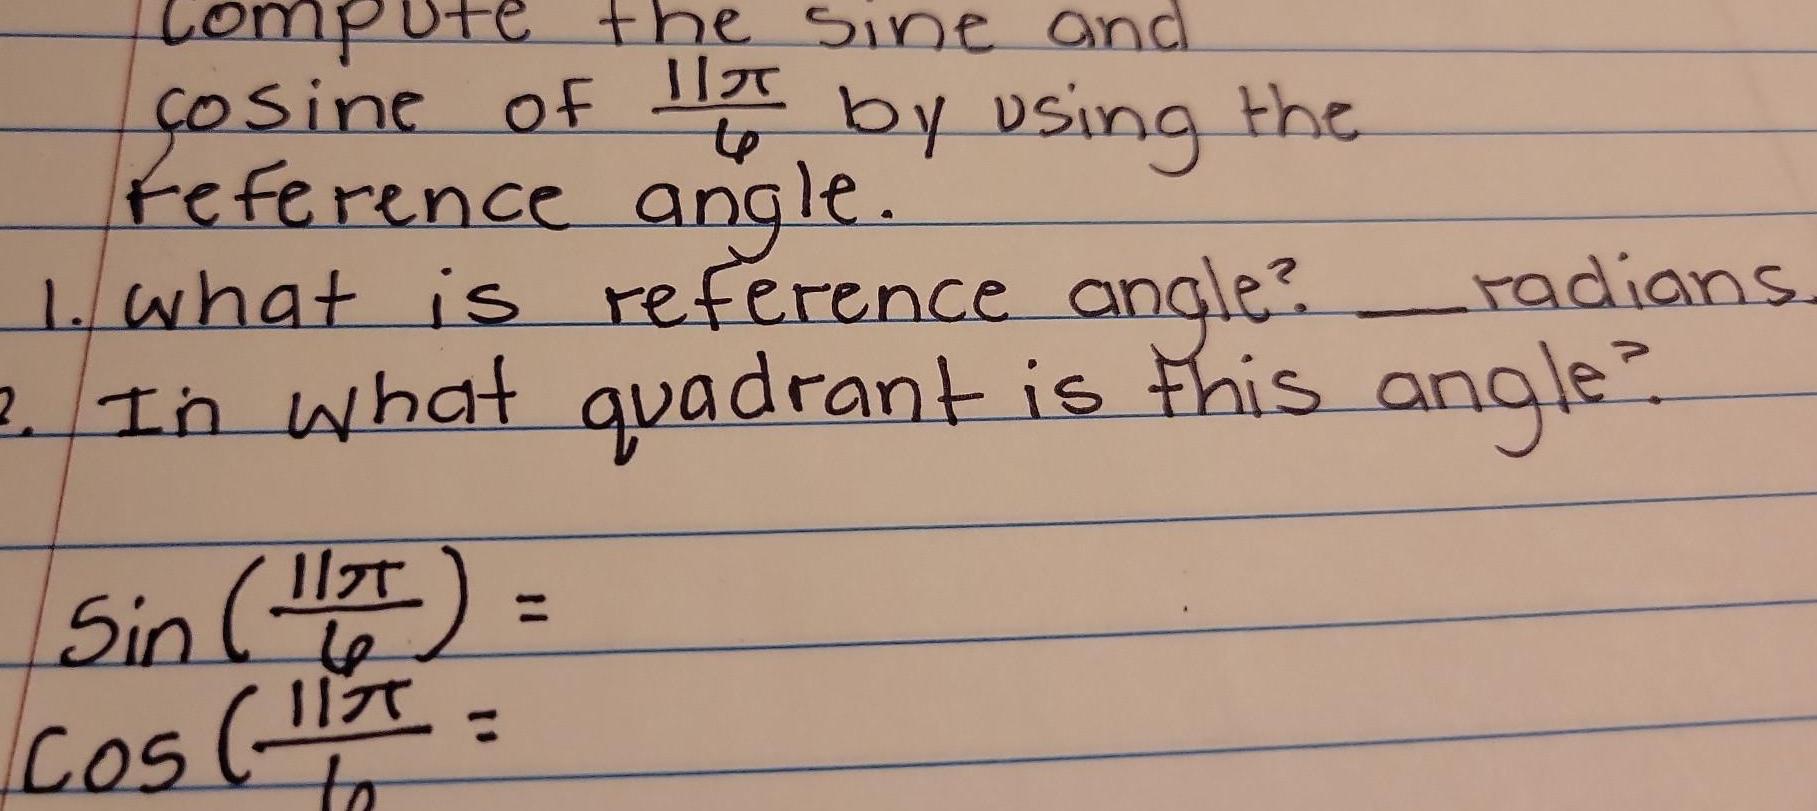 Compute the sine and
cosine of 11π/6 by using the
reference angle.
1. What is reference angle? __ radians.
2. In what quadrant is this angle?
Sin (11π/6) =
Cos (11π/6 =